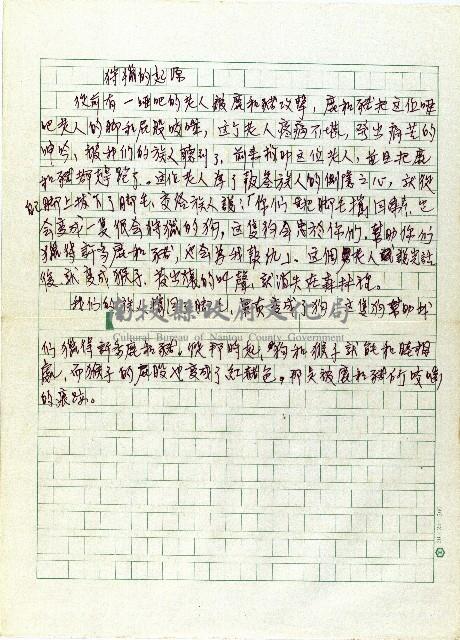 狩獵的起源
從前有一啞吧的老人被鹿和豬攻擊，鹿和豬把這位啞
吧老人的腳和屁股咬唯，這老人疼痛不堪，發出痛苦的
呻吟，被我們的族人聽到了，前來救助這位老人，並且把鹿
和豬都趕跑了。這位老人為了報答族人的側隱之心，就從
腳上拔下了腳毛交給族人說：「你們把腳毛攜回去，它
會變成一隻很會狩獵的狗，這隻狗會忠於你們，幫助你們
獵得許多鹿和豬，也會為我報仇」。這個老人說完話
後就變成猴子，發出猴的叫聲，就消失在森林裡。
我們的族人攜回腳毛，果真變成了狗，這隻狗幫助我
南投縣政府文化局
Cultural Bureau of Nantou County Government
們獵得許多鹿和豬。從那時起，狗和猴子就能和睦相
處，而猴子的屁股也變成了紅褐色，那是被鹿和豬所咬傷
的痕跡。